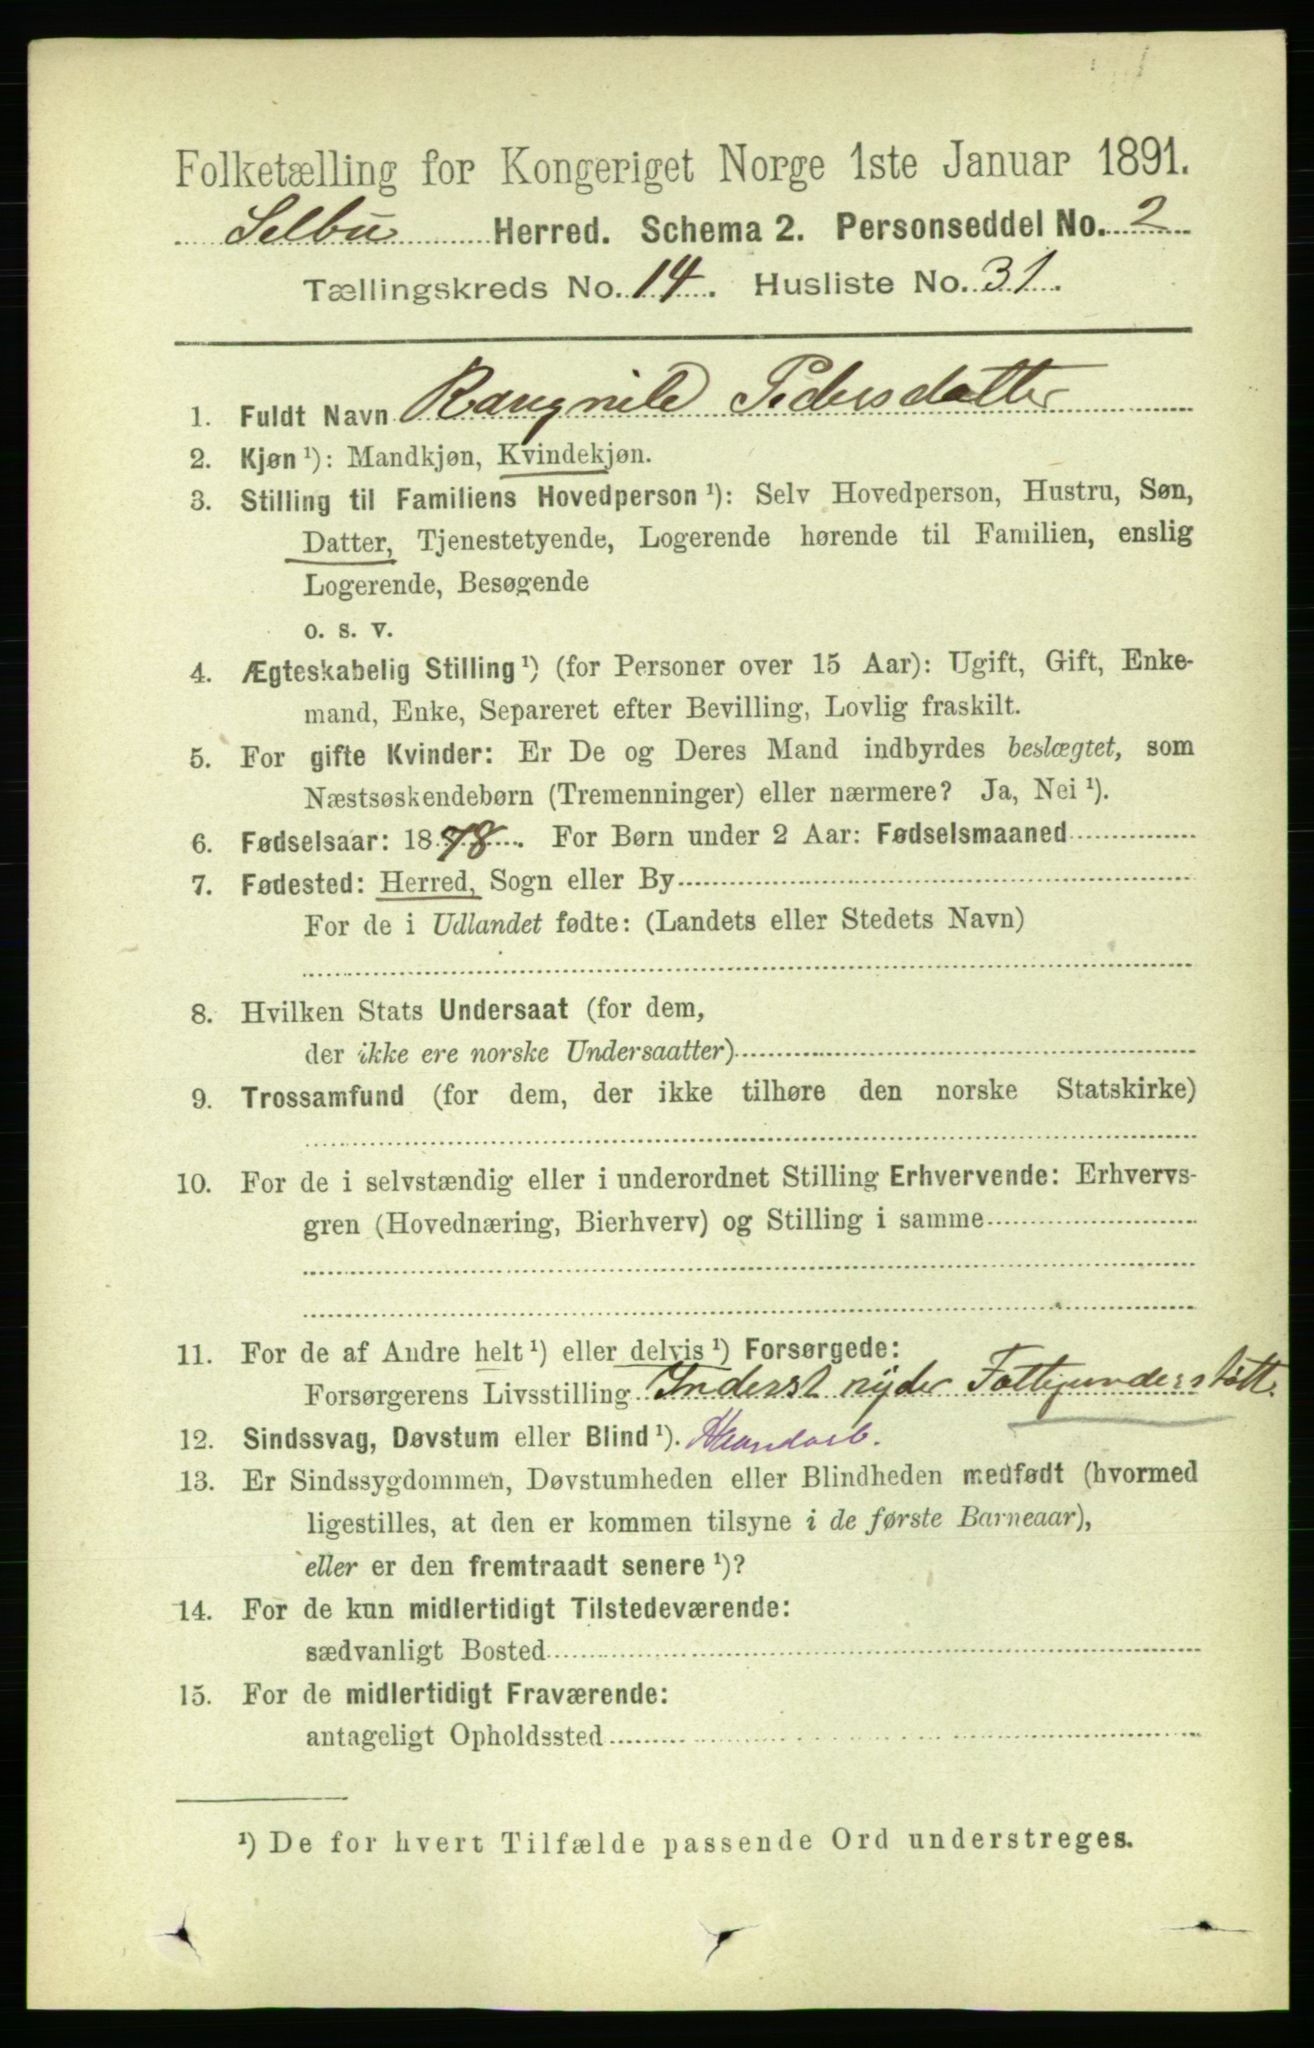 Folketælling for Kongeriget Norge 1ste Januar 1891.
Selbu Herred. Schema 2. Personseddel No. 2
Tællingskreds No. 14. Husliste No. 31.
1. Fuldt Navn Raugnild Pedersdatter
2. Kjøn ¹): Mandkjøn, Kvindekjøn.
3. Stilling til Familiens Hovedperson ¹): Selv Hovedperson, Hustru, Søn,
Datter, Tjenestetyende, Logerende hørende til Familien, enslig
Logerende, Besøgende
o. s. v.
4. Ægteskabelig Stilling ¹) (for Personer over 15 Aar): Ugift, Gift, Enke-
mand, Enke, Separeret efter Bevilling, Lovlig fraskilt.
5. For gifte Kvinder: Er De og Deres Mand indbyrdes beslægtet, som
Næstsøskendebørn (Tremenninger) eller nærmere? Ja, Nei ¹).
6. Fødselsaar: 1878. For Børn under 2 Aar: Fødselsmaaned
7. Fødested: Herred, Sogn eller By
For de i Udlandet fødte: (Landets eller Stedets Navn)
8. Hvilken Stats Undersaat (for dem,
der ikke ere norske Undersaatter)
9. Trossamfund (for dem, der ikke tilhøre den norske Statskirke)
10. For de i selvstændig eller i underordnet Stilling Erhvervende: Erhvervs-
gren (Hovednæring, Bierhverv) og Stilling i samme
11. For de af Andre helt ¹) eller delvis ¹) Forsørgede:
Forsørgerens Livsstilling Inderst nyder Fattigunderstøtt.
12. Sindssvag, Døvstum eller Blind ¹). Haandarb.
13. Er Sindssygdommen, Døvstumheden eller Blindheden medfødt (hvormed
ligestilles, at den er kommen tilsyne i de første Barneaar),
eller er den fremtraadt senere ¹)?
14. For de kun midlertidigt Tilstedeværende:
sædvanligt Bosted
15. For de midlertidigt Fraværende:
antageligt Opholdssted
¹) De for hvert Tilfælde passende Ord understreges.